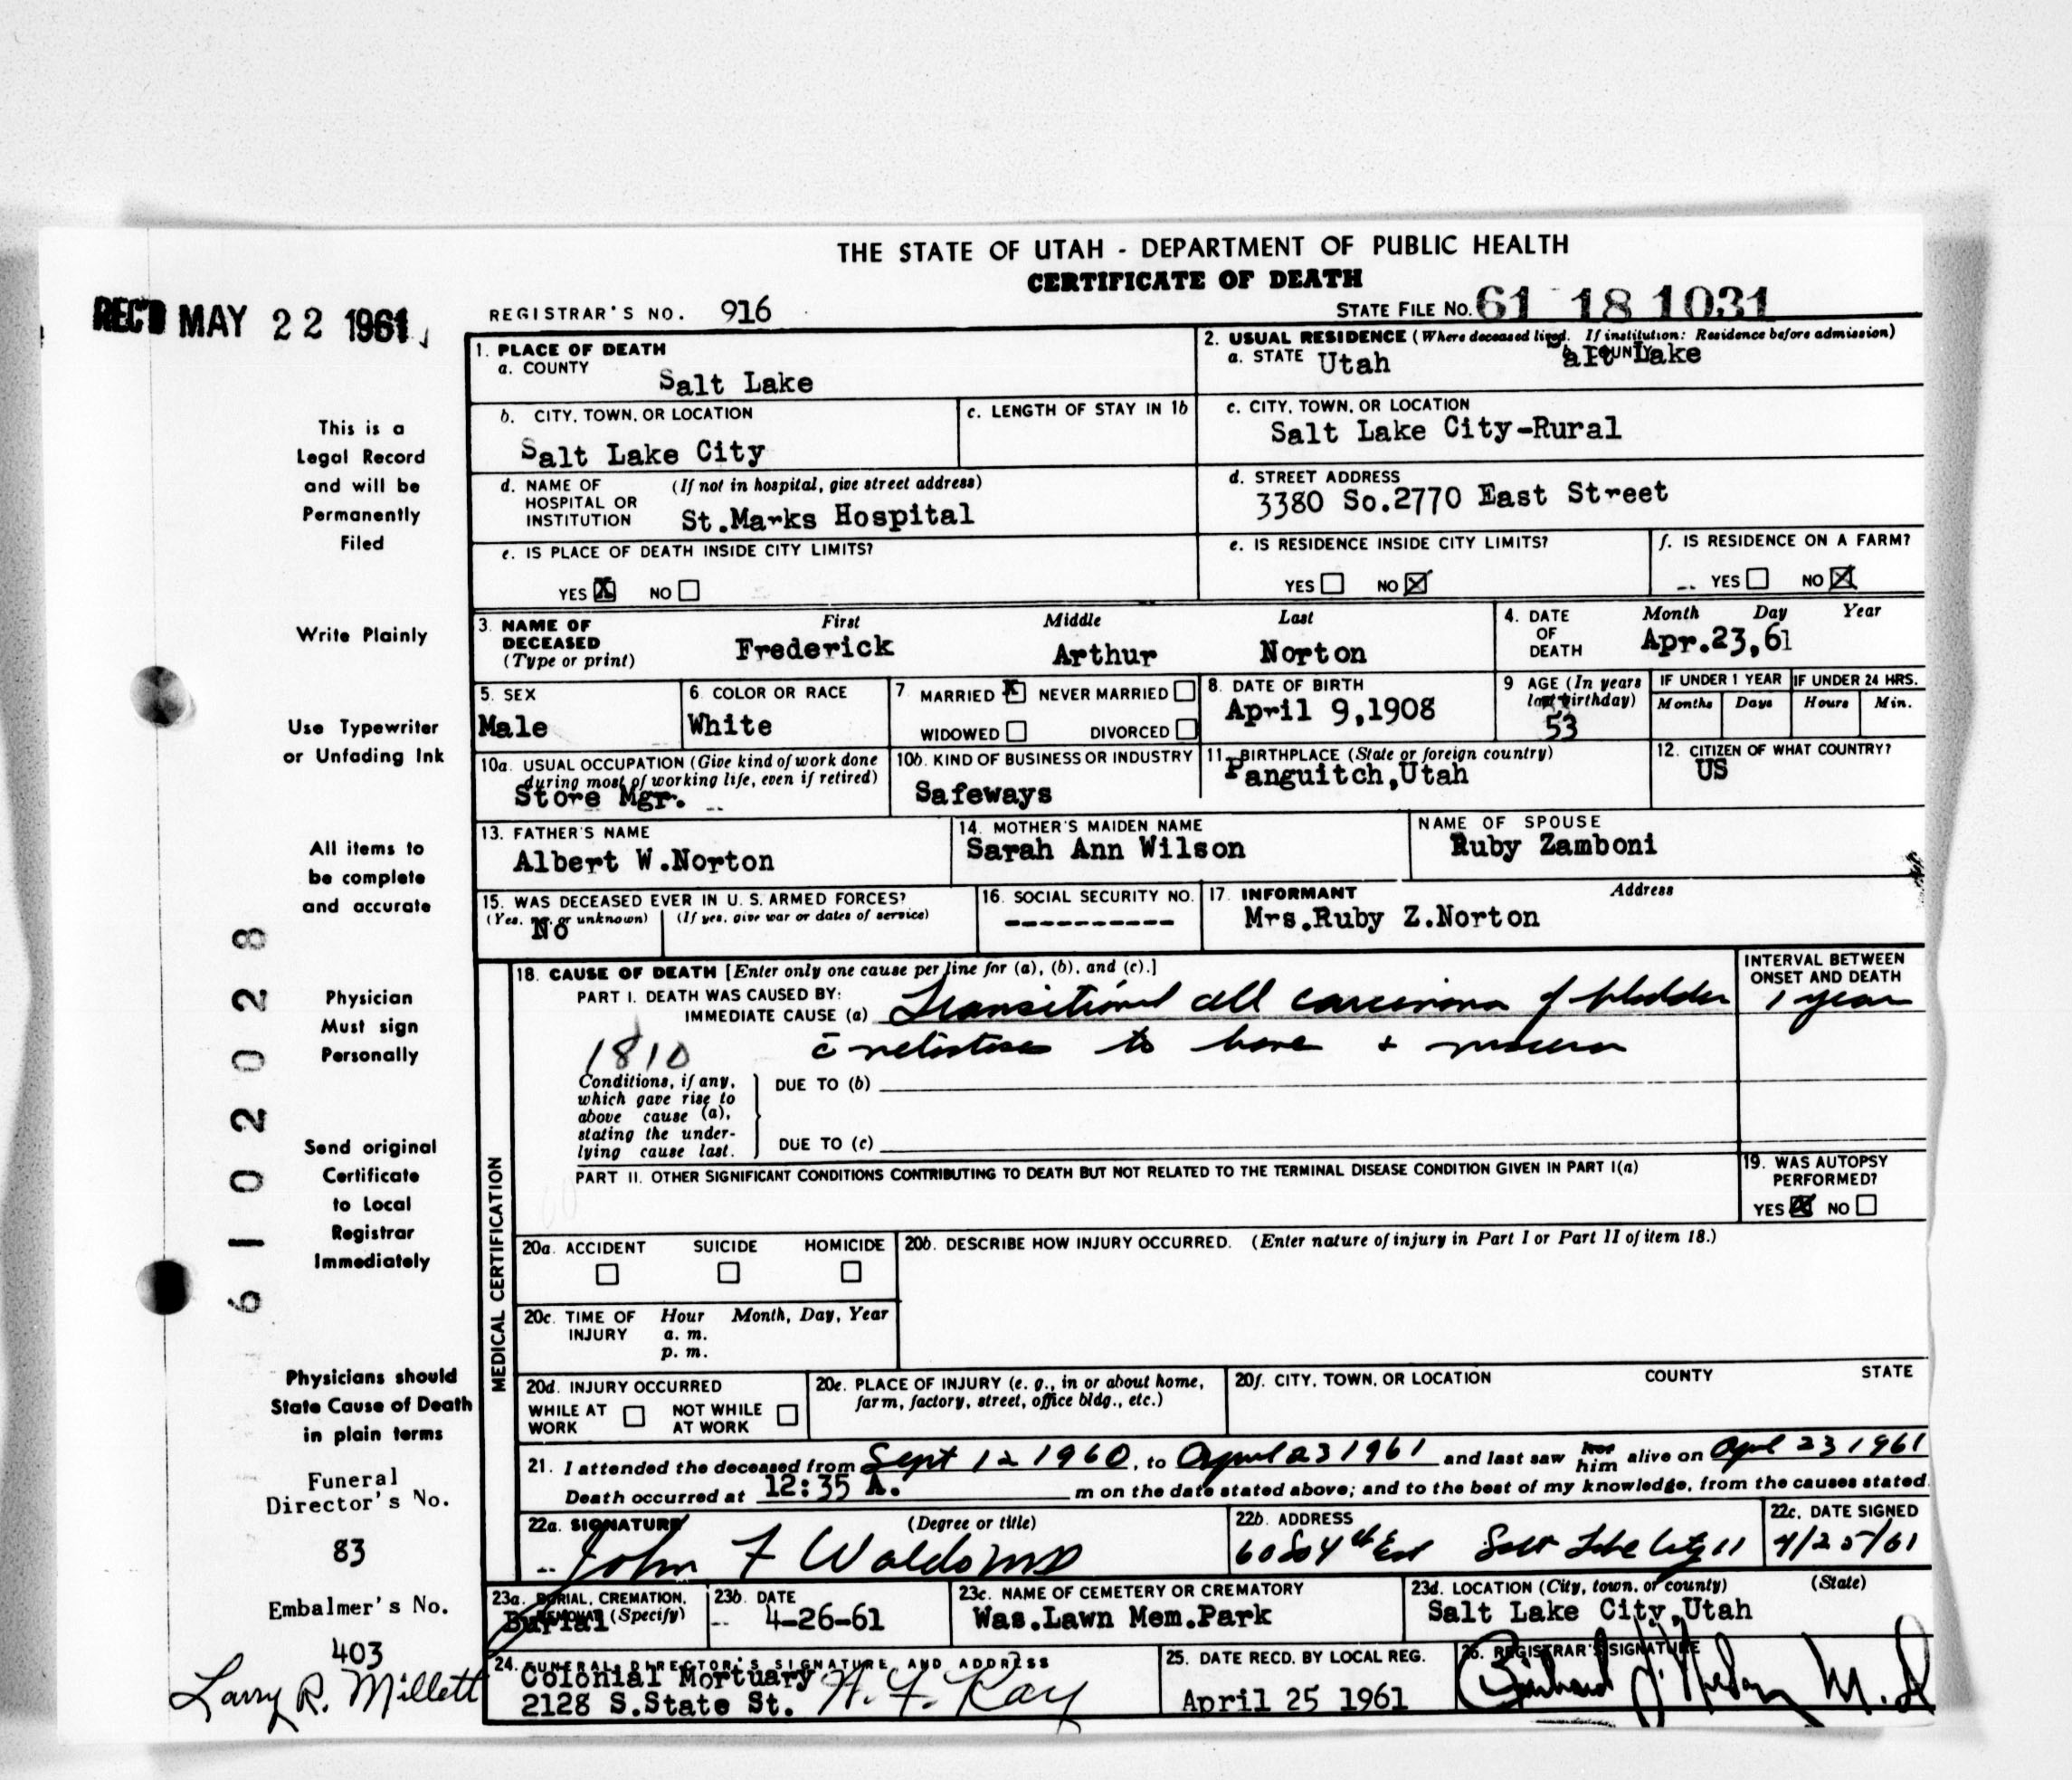 THE STATE OF UTAH - DEPARTMENT OF PUBLIC HEALTH
CERTIFICATE OF DEATH
REC'D MAY 22 1961
REGISTRAR'S NO. 916
STATE FILE NO. 61 18 1031
This is a
Legal Record
and will be
Permanently
Filed
Write Plainly
Use Typewriter
or Unfading Ink
All items to
be complete
and accurate
Physician
Must sign
Personally
Send original
Certificate
to Local
Registrar
Immediately
Physicians should
State Cause of Death
in plain terms
Funeral
Director's No.
83
Embalmer's No.
403
Larry R. Millett
6102028
1. PLACE OF DEATH
a. COUNTY
Salt Lake
2. USUAL RESIDENCE (Where deceased lived. If institution: Residence before admission)
a. STATE Utah
b. COUNTY Salt Lake
b. CITY, TOWN, OR LOCATION
Salt Lake City
c. LENGTH OF STAY IN 1b
c. CITY, TOWN, OR LOCATION
Salt Lake City-Rural
d. NAME OF HOSPITAL OR INSTITUTION (If not in hospital, give street address)
St.Marks Hospital
d. STREET ADDRESS
3380 So.2770 East Street
e. IS PLACE OF DEATH INSIDE CITY LIMITS?
YES X NO
e. IS RESIDENCE INSIDE CITY LIMITS?
YES NO X
f. IS RESIDENCE ON A FARM?
YES NO X
3. NAME OF DECEASED (Type or print)
First Middle Last
Frederick Arthur Norton
4. DATE OF DEATH
Month Day Year
Apr.23,61
5. SEX
Male
6. COLOR OR RACE
White
7. MARRIED X NEVER MARRIED
WIDOWED DIVORCED
8. DATE OF BIRTH
April 9,1908
9 AGE (In years last birthday)
53
IF UNDER 1 YEAR
Months Days
IF UNDER 24 HRS.
Hours Min.
10a. USUAL OCCUPATION (Give kind of work done during most of working life, even if retired)
Store Mgr.
10b. KIND OF BUSINESS OR INDUSTRY
Safeways
11. BIRTHPLACE (State or foreign country)
Panguitch,Utah
12. CITIZEN OF WHAT COUNTRY?
US
13. FATHER'S NAME
Albert W.Norton
14. MOTHER'S MAIDEN NAME
Sarah Ann Wilson
NAME OF SPOUSE
Ruby Zamboni
15. WAS DECEASED EVER IN U.S. ARMED FORCES?
(Yes, no, or unknown) (If yes, give war or dates of service)
No
16. SOCIAL SECURITY NO.
----------
17. INFORMANT Address
Mrs.Ruby Z.Norton
MEDICAL CERTIFICATION
18. CAUSE OF DEATH [Enter only one cause per line for (a), (b), and (c).]
PART I. DEATH WAS CAUSED BY:
IMMEDIATE CAUSE (a) Transitional cell carcinoma of bladder
1810
to bone +
INTERVAL BETWEEN ONSET AND DEATH
1 year
Conditions, if any, which gave rise to above cause (a), stating the underlying cause last.
DUE TO (b)
DUE TO (c)
PART II. OTHER SIGNIFICANT CONDITIONS CONTRIBUTING TO DEATH BUT NOT RELATED TO THE TERMINAL DISEASE CONDITION GIVEN IN PART I(a)
19. WAS AUTOPSY PERFORMED?
YES X NO
20a. ACCIDENT SUICIDE HOMICIDE
20b. DESCRIBE HOW INJURY OCCURRED. (Enter nature of injury in Part I or Part II of item 18.)
20c. TIME OF INJURY Hour Month, Day, Year
a. m.
p. m.
20d. INJURY OCCURRED
WHILE AT WORK NOT WHILE AT WORK
20e. PLACE OF INJURY (e. g., in or about home, farm, factory, street, office bldg., etc.)
20f. CITY, TOWN, OR LOCATION COUNTY STATE
21. I attended the deceased from Sept 12 1960, to April 23 1961 and last saw her him alive on April 23 1961
Death occurred at 12:35 A. m on the date stated above; and to the best of my knowledge, from the causes stated.
22a. SIGNATURE (Degree or title)
John F Waldo MD
22b. ADDRESS
60 So 4th East Salt Lake City 11
22c. DATE SIGNED
4/25/61
23a. BURIAL, CREMATION, REMOVAL (Specify)
Burial
23b. DATE
4-26-61
23c. NAME OF CEMETERY OR CREMATORY
Was.Lawn Mem.Park
23d. LOCATION (City, town, or county) (State)
Salt Lake City,Utah
24. FUNERAL DIRECTOR'S SIGNATURE AND ADDRESS
Colonial Mortuary
2128 S.State St.
25. DATE RECD. BY LOCAL REG.
April 25 1961
26. REGISTRAR'S SIGNATURE